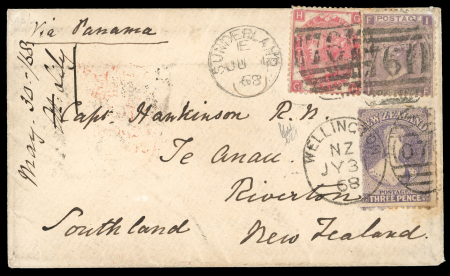 Via Panama
May 30/68
SUNDERLAND
E
JU
68
H G
G H
F I
POSTAGE
760
Capt Hankinson R.N.
Te Anau.
Riverton
Southland
New Zealand.
WELLINGTON
NZ
JY 3
68
NEW ZEALAND
07
POSTAGE
THREE PENCE